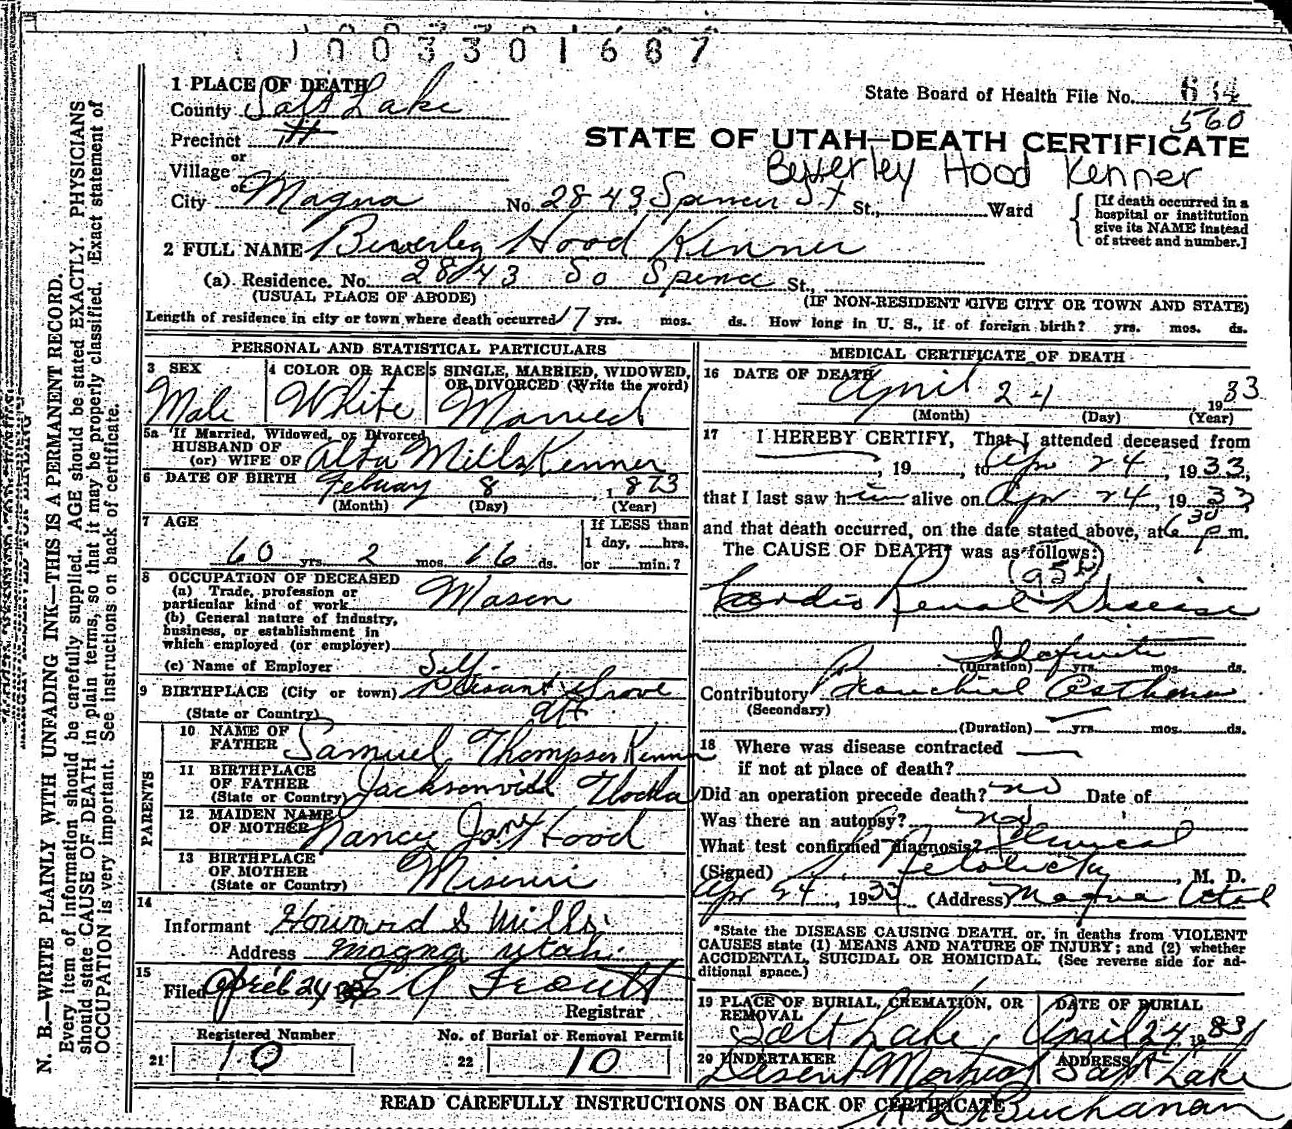 1003301687
1 PLACE OF DEATH
County Salt Lake
State Board of Health File No. 634
560
Precinct
or
Village
or
City Magna No. 2843 Spencer St St., Ward
STATE OF UTAH—DEATH CERTIFICATE
Beverley Hood Kenner
[If death occurred in a
hospital or institution
give its NAME instead
of street and number.]
2 FULL NAME Beverley Hood Kenner
(a) Residence. No. 2843 So Spencer St.,
(USUAL PLACE OF ABODE) (IF NON-RESIDENT GIVE CITY OR TOWN AND STATE)
Length of residence in city or town where death occurred 17 yrs. mos. ds. How long in U. S., if of foreign birth? yrs. mos. ds.
PERSONAL AND STATISTICAL PARTICULARS
3 SEX
Male
4 COLOR OR RACE
White
5 SINGLE, MARRIED, WIDOWED,
OR DIVORCED (Write the word)
Married
5a If Married, Widowed, or Divorced
HUSBAND OF
(or) WIFE OF Alta Mills Kenner
6 DATE OF BIRTH Febuary 8, 1873
(Month) (Day) (Year)
7 AGE
60 yrs. 2 mos. 16 ds.
If LESS than
1 day, hrs.
or min.?
8 OCCUPATION OF DECEASED
(a) Trade, profession or
particular kind of work Mason
(b) General nature of industry,
business, or establishment in
which employed (or employer)
(c) Name of Employer Self
9 BIRTHPLACE (City or town) Plesant Grove
(State or Country) Ut
PARENTS
10 NAME OF
FATHER Samuel Thompson Kenner
11 BIRTHPLACE
OF FATHER
(State or Country) Jacksonvill
12 MAIDEN NAME
OF MOTHER Nancy Jane Hood
13 BIRTHPLACE
OF MOTHER
(State or Country) Misouri
14
Informant Howard S Mills
Address Magna Utah.
15
Filed April 24 33
Registrar
Registered Number
21 10
No. of Burial or Removal Permit
22 10
MEDICAL CERTIFICATE OF DEATH
16 DATE OF DEATH
April 24 1933
(Month) (Day) (Year)
17 I HEREBY CERTIFY, That I attended deceased from
, 19 , to Apr 24, 1933,
that I last saw him alive on Apr 24, 1933,
and that death occurred, on the date stated above, at 6 30 p m.
The CAUSE OF DEATH* was as follows:
Cardio Renal Disease
Indefinite
(Duration) yrs. mos. ds.
Contributory Bronchial Asthma
(Secondary)
(Duration) yrs. mos. ds.
18 Where was disease contracted
if not at place of death?
Did an operation precede death? no Date of
Was there an autopsy? no
What test confirmed diagnosis? Clinical
(Signed) , M. D.
Apr 24, 1933 (Address) Magna Utah
*State the DISEASE CAUSING DEATH, or, in deaths from VIOLENT
CAUSES state (1) MEANS AND NATURE OF INJURY; and (2) whether
ACCIDENTAL, SUICIDAL OR HOMICIDAL. (See reverse side for ad-
ditional space.)
19 PLACE OF BURIAL, CREMATION, OR
REMOVAL
Salt Lake
DATE OF BURIAL
April 24, 1933
20 UNDERTAKER
Deseret Mortuary
ADDRESS
Salt Lake
Buchanan
READ CAREFULLY INSTRUCTIONS ON BACK OF CERTIFICATE
N. B.—WRITE PLAINLY WITH UNFADING INK—THIS IS A PERMANENT RECORD.
Every item of information should be carefully supplied. AGE should be stated EXACTLY. PHYSICIANS
should state CAUSE OF DEATH in plain terms, so that it may be properly classified. Exact statement of
OCCUPATION is very important. See instructions on back of certificate.